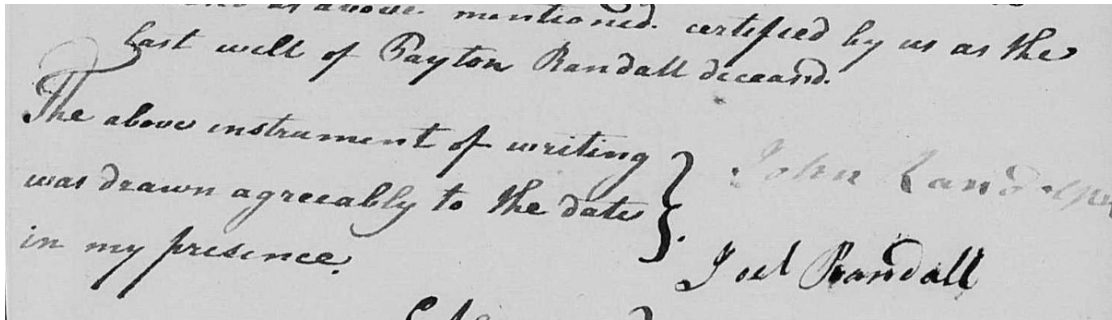 as above mentioned. certified by us as the
last will of Payton Randall deceasd.
The above instrument of writing
was drawn agreeably to the date
in my presence.
John Randolph
Joel Randall